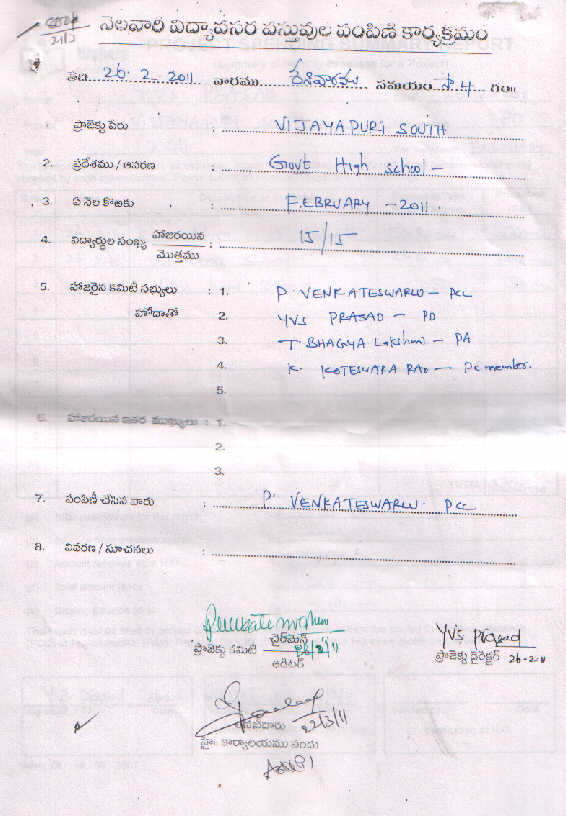 నెలవారి విద్యావసర వస్తువుల పంపిణి కార్యక్రమం
తేది 26.2.2011 వారము శనివారము సమయం సా 4 గం॥
ప్రాజెక్టు పేరు : VIJAYAPURI SOUTH
2. ప్రదేశము / ఆవరణ : Govt High school -
3. ఏ నెల కొఱకు : FEBRUARY - 2011.
4. విద్యార్థుల సంఖ్య హాజరయిన / మొత్తము : 15/15
5. హాజరైన కమిటి సభ్యులు : 1. P. VENKATESWARLU - PCC
హోదాతో 2. YVS PRASAD - PD
3. T. BHAGYA Lakshmi - PA
4. K. KOTESWARA RAO - PC member.
5.
6. హాజరయిన ఇతర ముఖ్యులు : 1.
2.
3.
7. పంపిణీ చేసిన వారు : P. VENKATESWARLU. PCC
8. వివరణ / సూచనలు :
చైర్‌మెన్
ప్రాజెక్టు కమిటి
ఆడిటర్
YVS Prasad
ప్రాజెక్టు డైరెక్టర్ 26-2-11
22/3/11
కార్యాలయము నందు